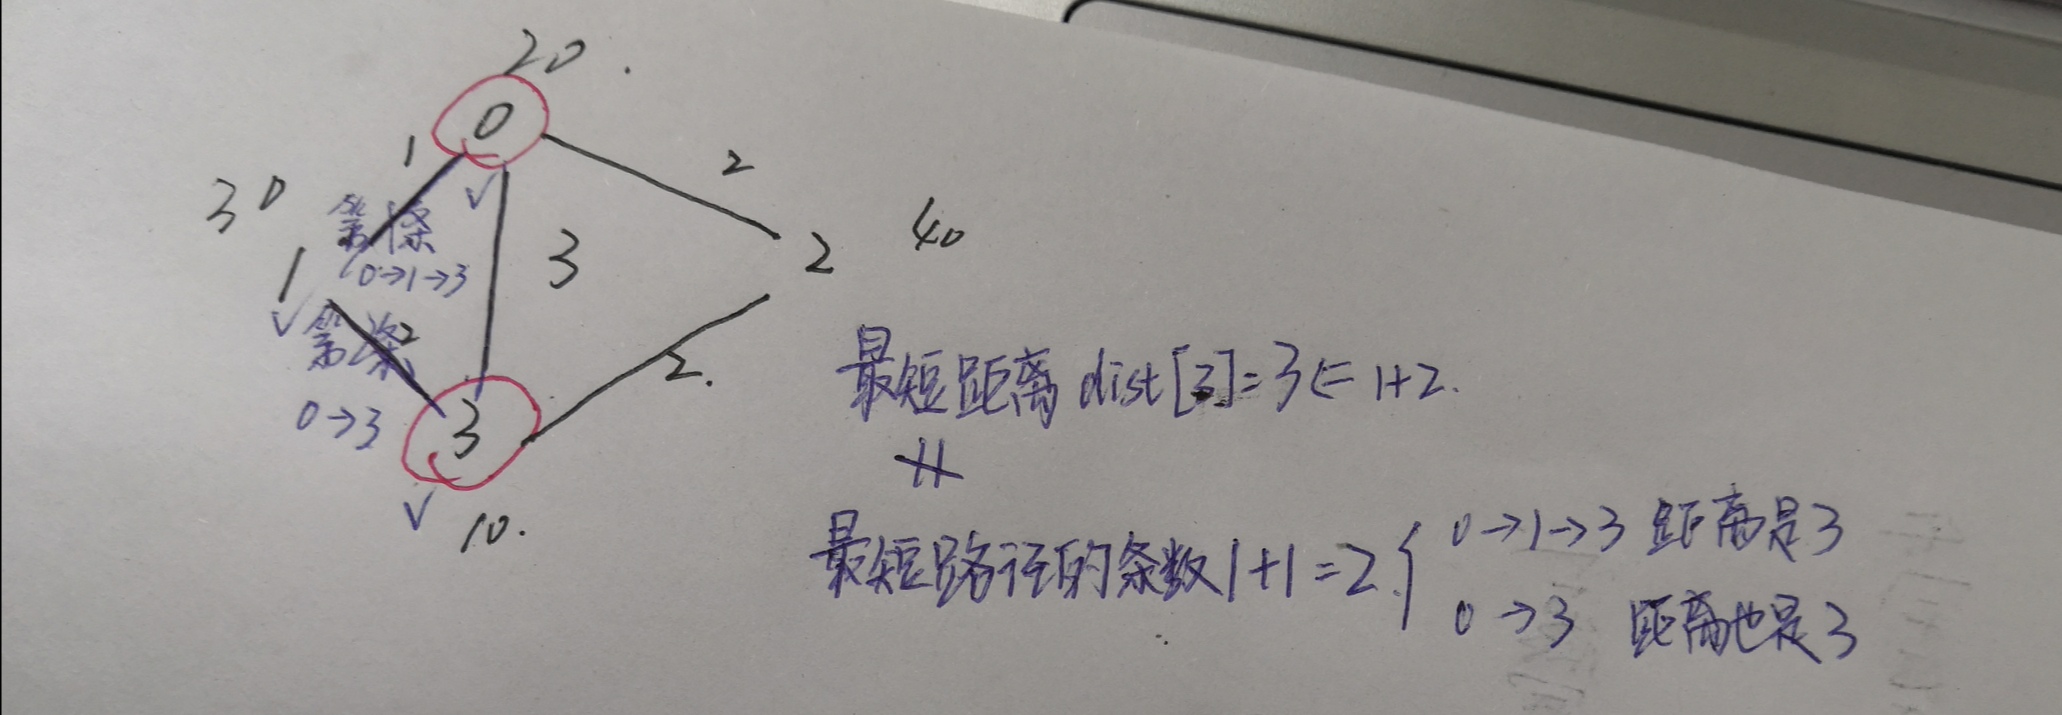 20.
0
1
2
30
第1条
3
2
40
0→1→3
1
第2条
2
2.
0→3
3
10.
最短距离 dist[3]=3 ⇐ 1+2.
最短路径的条数 1+1=2.{
0→1→3 距离是3
0→3 距离也是3